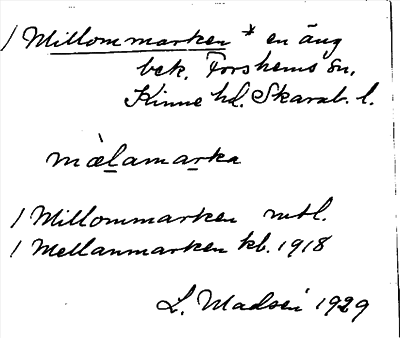 / Millommarken * en äng
bek. Forshems sn.
Kinne hd. Skarab. l.
mælamarka
/ Millommarken mtl.
/ Mellanmarken kb. 1918
L. Madsén 1929